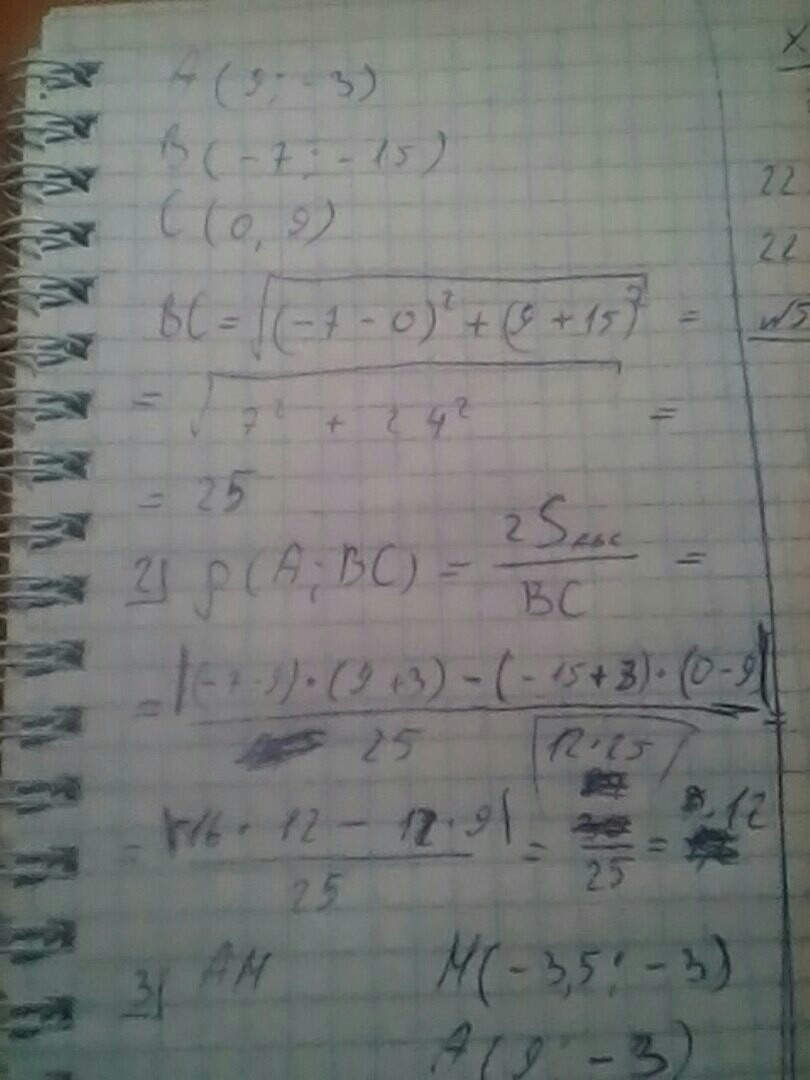 A(9; -3)
B(-7; -15)
C(0, 9)
BC = √((-7-0)² + (9+15)²) =
= √(7² + 24²) =
= 25
2) ρ(A; BC) = 2S_ABC / BC =
= |(-7-9)·(9+3) - (-15+3)·(0-9)| / 25 =
= |-16·12 - 12·9| / 25 = 12·25 / 25 = 12
3) AM M(-3,5; -3)
A(9; -3)
22
22
√5